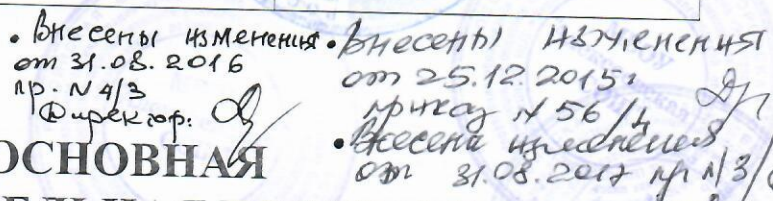 • Внесены изменения
от 31.08.2016
пр. N 4/3
Директор:
• Внесены изменения
от 25.12.2015г
приказ N 56/4
• Внесена изменения
от 31.08.2017 пр N 3/
ОСНОВНАЯ